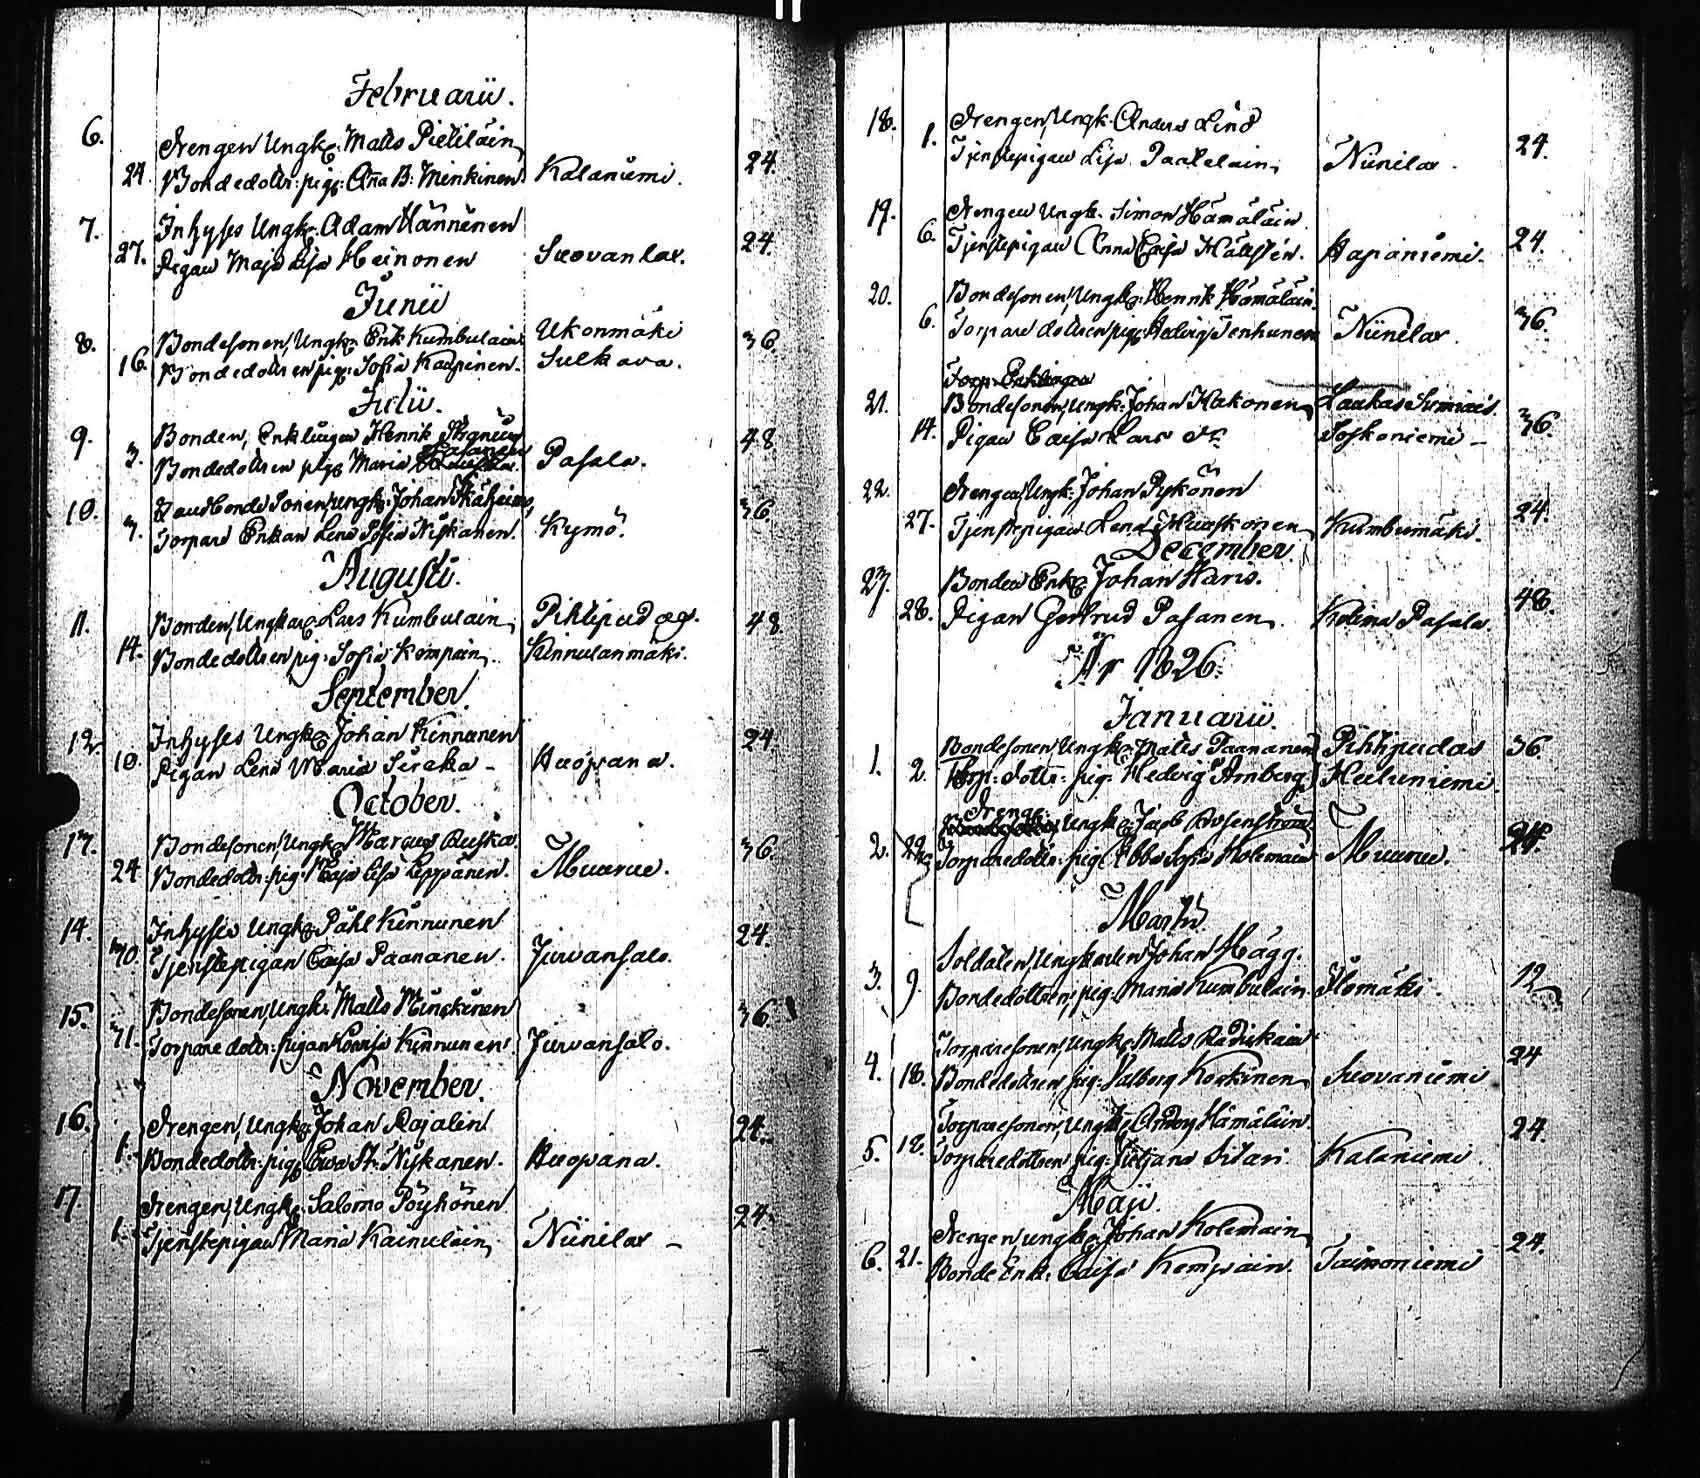 Februarii.
6. Drengen Ungk: Matts Pietiläin
24. Bondedottr: pig: Aña B: Minkinen Kalaniemi. 24.
7. Inhyses Ungk: Adam Hänninen
27. Pigan Maja Lisa Heinonen Suovanlax. 24.
Junii
8. Bondesonen, Ungk: Erik Kumbulain Ukonmäki 36.
16. Bondedottren pig: Sofia Kaapinen. Sulkava.
Julii.
9. Bonden, Enklingen Henrik 48
3. Bondedottren pig: Maria Pasala.
10. Landbonde Sonen, ungk: Johan 36.
7. Torpare Enkan Lena Sofia Niskanen. Kymö.
Augusti.
11. Bonden, Ungkar: Lars Kumbulain Pihtipudas. 48
14. Bondedottren pig: Sofia Kompain. Kinnulanmäki.
September.
12. Inhyses Ungk: Johan Kinnunen 24.
10. Pigan Lena Maria Siraka - Huopana.
October.
13. Bondesonen, Ungk: Marcus Ruska. 36.
24 Bondedottr: pig: Maja Lisa Leppänen. Muurue.
14. Inhyses Ungk: Påhl Kinnunen 24.
30. Tjenstepigan Caisa Paananen. Jurvansalo.
15. Bondesonen, Ungk: Matts Minckinen 36
31. Torpare dottr: pigan Lovisa Kinnunen Jurvansalo.
November.
16. Drengen, Ungk: Johan Rajalin 24.
1. Bondedottr: pig: Ewa St: Nykänen. Huopana.
17. Drengen, Ungk: Salomo Pöyhönen 24.
1. Tjenstepigan Maria Kainulain Niinilax -
18. Drengen, Ungk: Anders Lind
1. Tjenstepigan Lisa Paatelain Niinilax. 24.
19. Drengen Ungk. Simon Hämäläin
6. Tjenstepigan Anna Caisa Hällstén. Hapaniemi. 24.
20. Bondesonen, Ungk: Henrik Hämäläin.
6. Torpare dottren pig: Hedvig Tenhunen Niinilax. 36.
Torp: Enklingen
21. Bondesonen, Ungk: Johan Hakonen Laukas Sumiais.
14. Pigan Caisa Lars dr. Soskoniemi - 36.
22. Drengen, Ungk: Johan Pykönen
27. Tjenstepigan Lena Huuskonen Kumbumäki. 24.
December.
23. Bonden Enk: Johan Haris.
28. Pigan Gertrud Pasanen. Kolima Pasala. 48.
År 1826.
Januarii.
1. Bondesonen, Ungk: Matts Paananen Pihtipudas 36
2. Torp: dottr: pig: Hedvig Arnberg Heitoniemi.
Drengen
2. Ungk: Jacob Rosenström
22. Torparedottr: pig: Ebba Sofia Kolemain Muurue. 24.
Martii
3. Soldaten, Ungkarlen Johan Hägg.
9. Bondedottren, pig: Maria Kumbulain Ilomäki. 12
4. Torparesonen, Ungk: Matts
18. Bondedottren, pig: Valborg Korkinen Suovaniemi 24
5. Torparesonen, Ungk: Hämäläin.
18. Torparedottren pig: Sitari. Kalaniemi. 24.
Maji.
6. Drengen ungk: Johan Kolemain
21. Bonde Enk: Caisa Kempain. Taimoniemi 24.